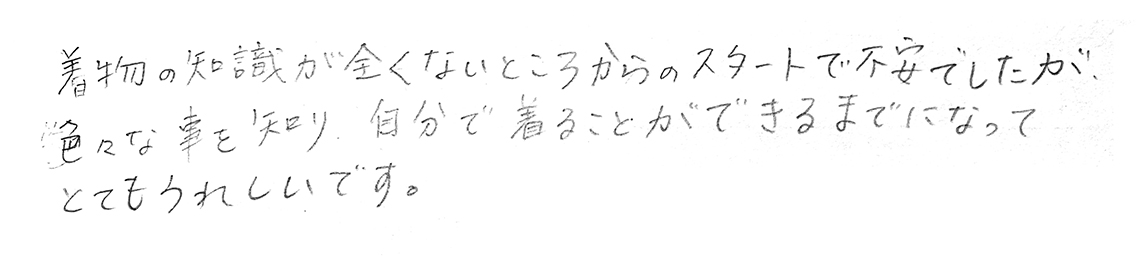 着物の知識が全くないところからのスタートで不安でしたが、
色々な事を知り、自分で着ることができるまでになって
とてもうれしいです。